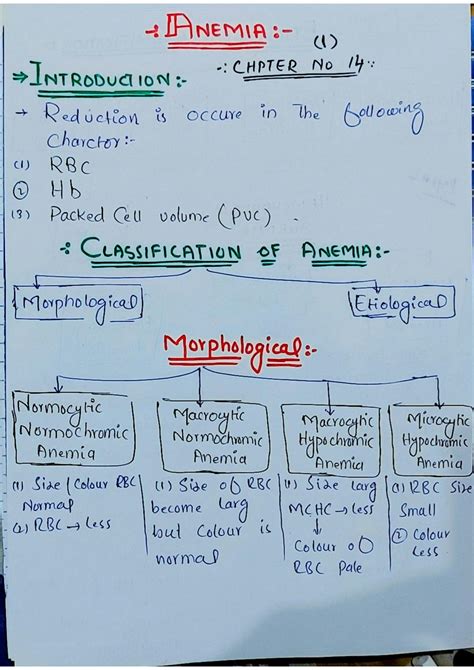 -: ANEMIA:-
(1)
-: CHPTER NO 14:-
⇒ INTRODUCTION:-
→ Reduction is occure in The following
Charctor:-
(1) RBC
② Hb
(3) Packed Cell volume (PVC).
-: CLASSIFICATION OF ANEMIA:-
Morphological
Etiological
Morphological:-
Normocytic
Normochromic
Anemia
(1) Size / Colour RBC
Normal
(2) RBC → Less
Macrocytic
Normochromic
Anemia
(1) Size of RBC
become larg
but Colour is
normal
Macrocytic
Hypochromic
Anemia
(1) Size larg
MCHC → less
↓
Colour of
RBC Pale
Microcytic
Hypochromic
Anemia
(1) RBC Size
Small
② Colour
Less